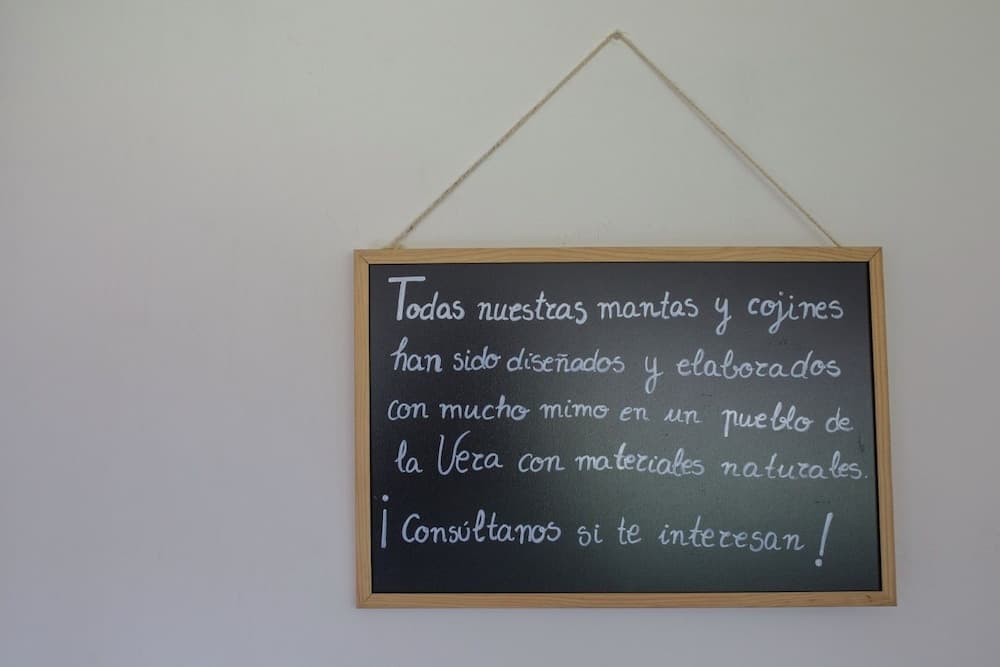 Todas nuestras mantas y cojines
han sido diseñados y elaborados
con mucho mimo en un pueblo de
la Vera con materiales naturales.
¡Consúltanos si te interesan!